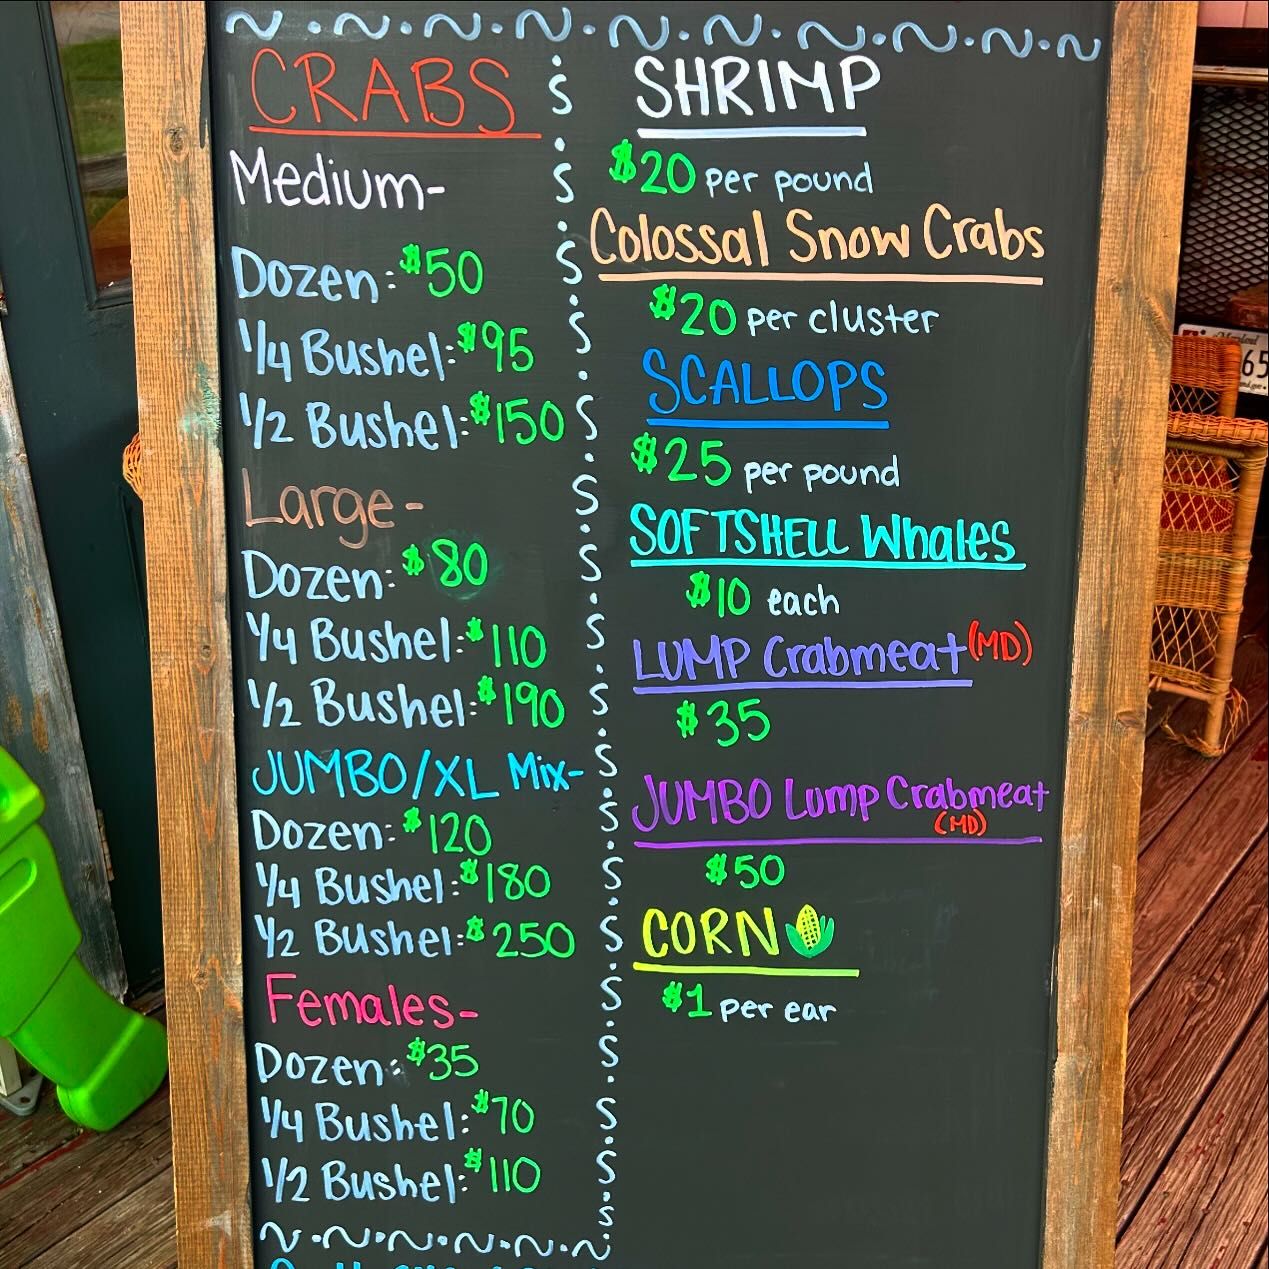 CRABS
Medium-
Dozen: $50
1/4 Bushel: $95
1/2 Bushel: $150
Large-
Dozen: $80
1/4 Bushel: $110
1/2 Bushel: $190
JUMBO/XL Mix-
Dozen: $120
1/4 Bushel: $180
1/2 Bushel: $250
Females-
Dozen: $35
1/4 Bushel: $70
1/2 Bushel: $110
SHRIMP
$20 per pound
Colossal Snow Crabs
$20 per cluster
SCALLOPS
$25 per pound
SOFTSHELL Whales
$10 each
LUMP Crabmeat (MD)
$35
JUMBO Lump Crabmeat
(MD)
$50
CORN
$1 per ear
Maryland
65